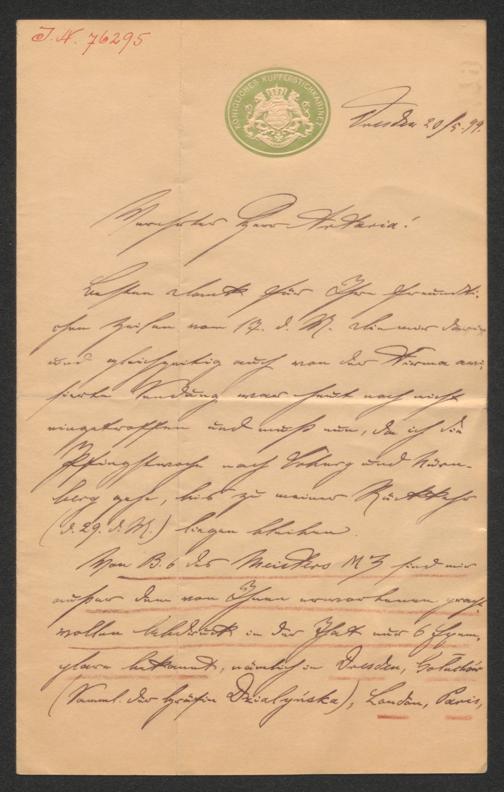 J. N. 76295
KÖNIGLICHES KUPFERSTICHKABINET
Dresden 20/5. 99.
Verehrter Herr Artaria!
Besten Dank für Ihre freundli-
chen Zeilen vom 17. d. M. Die mir darin
und gleichzeitig auch von der Firma avi-
sierte Sendung war heut noch nicht
eingetroffen und muß nun, da ich die
Pfingstwoche nach Coburg und Nürn-
berg gehe, bis zu meiner Rückkehr
(d. 29. d. M.) liegen bleiben.
Von B. 6 des Meisters MZ sind mir
außer dem von Ihnen erworbenen pracht-
vollen Abdruck in der That nur 6 Exem-
plare bekannt, nämlich in Dresden, Goluchów
(Samml. der Gräfin Dzialyńska), London, Paris,